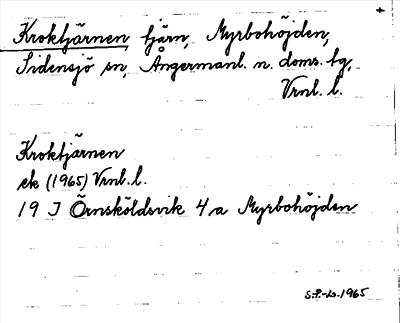 Kroktjärnen tjärn, Myrbohöjden,
Sidensjö sn, Ångermanl. n. doms. tg,
Vrnl. l.
Kroktjärnen
ek (1965) Vrnl. l.
19 J Örnsköldsvik 4 a Myrbohöjden
S.P.-Lö. 1965